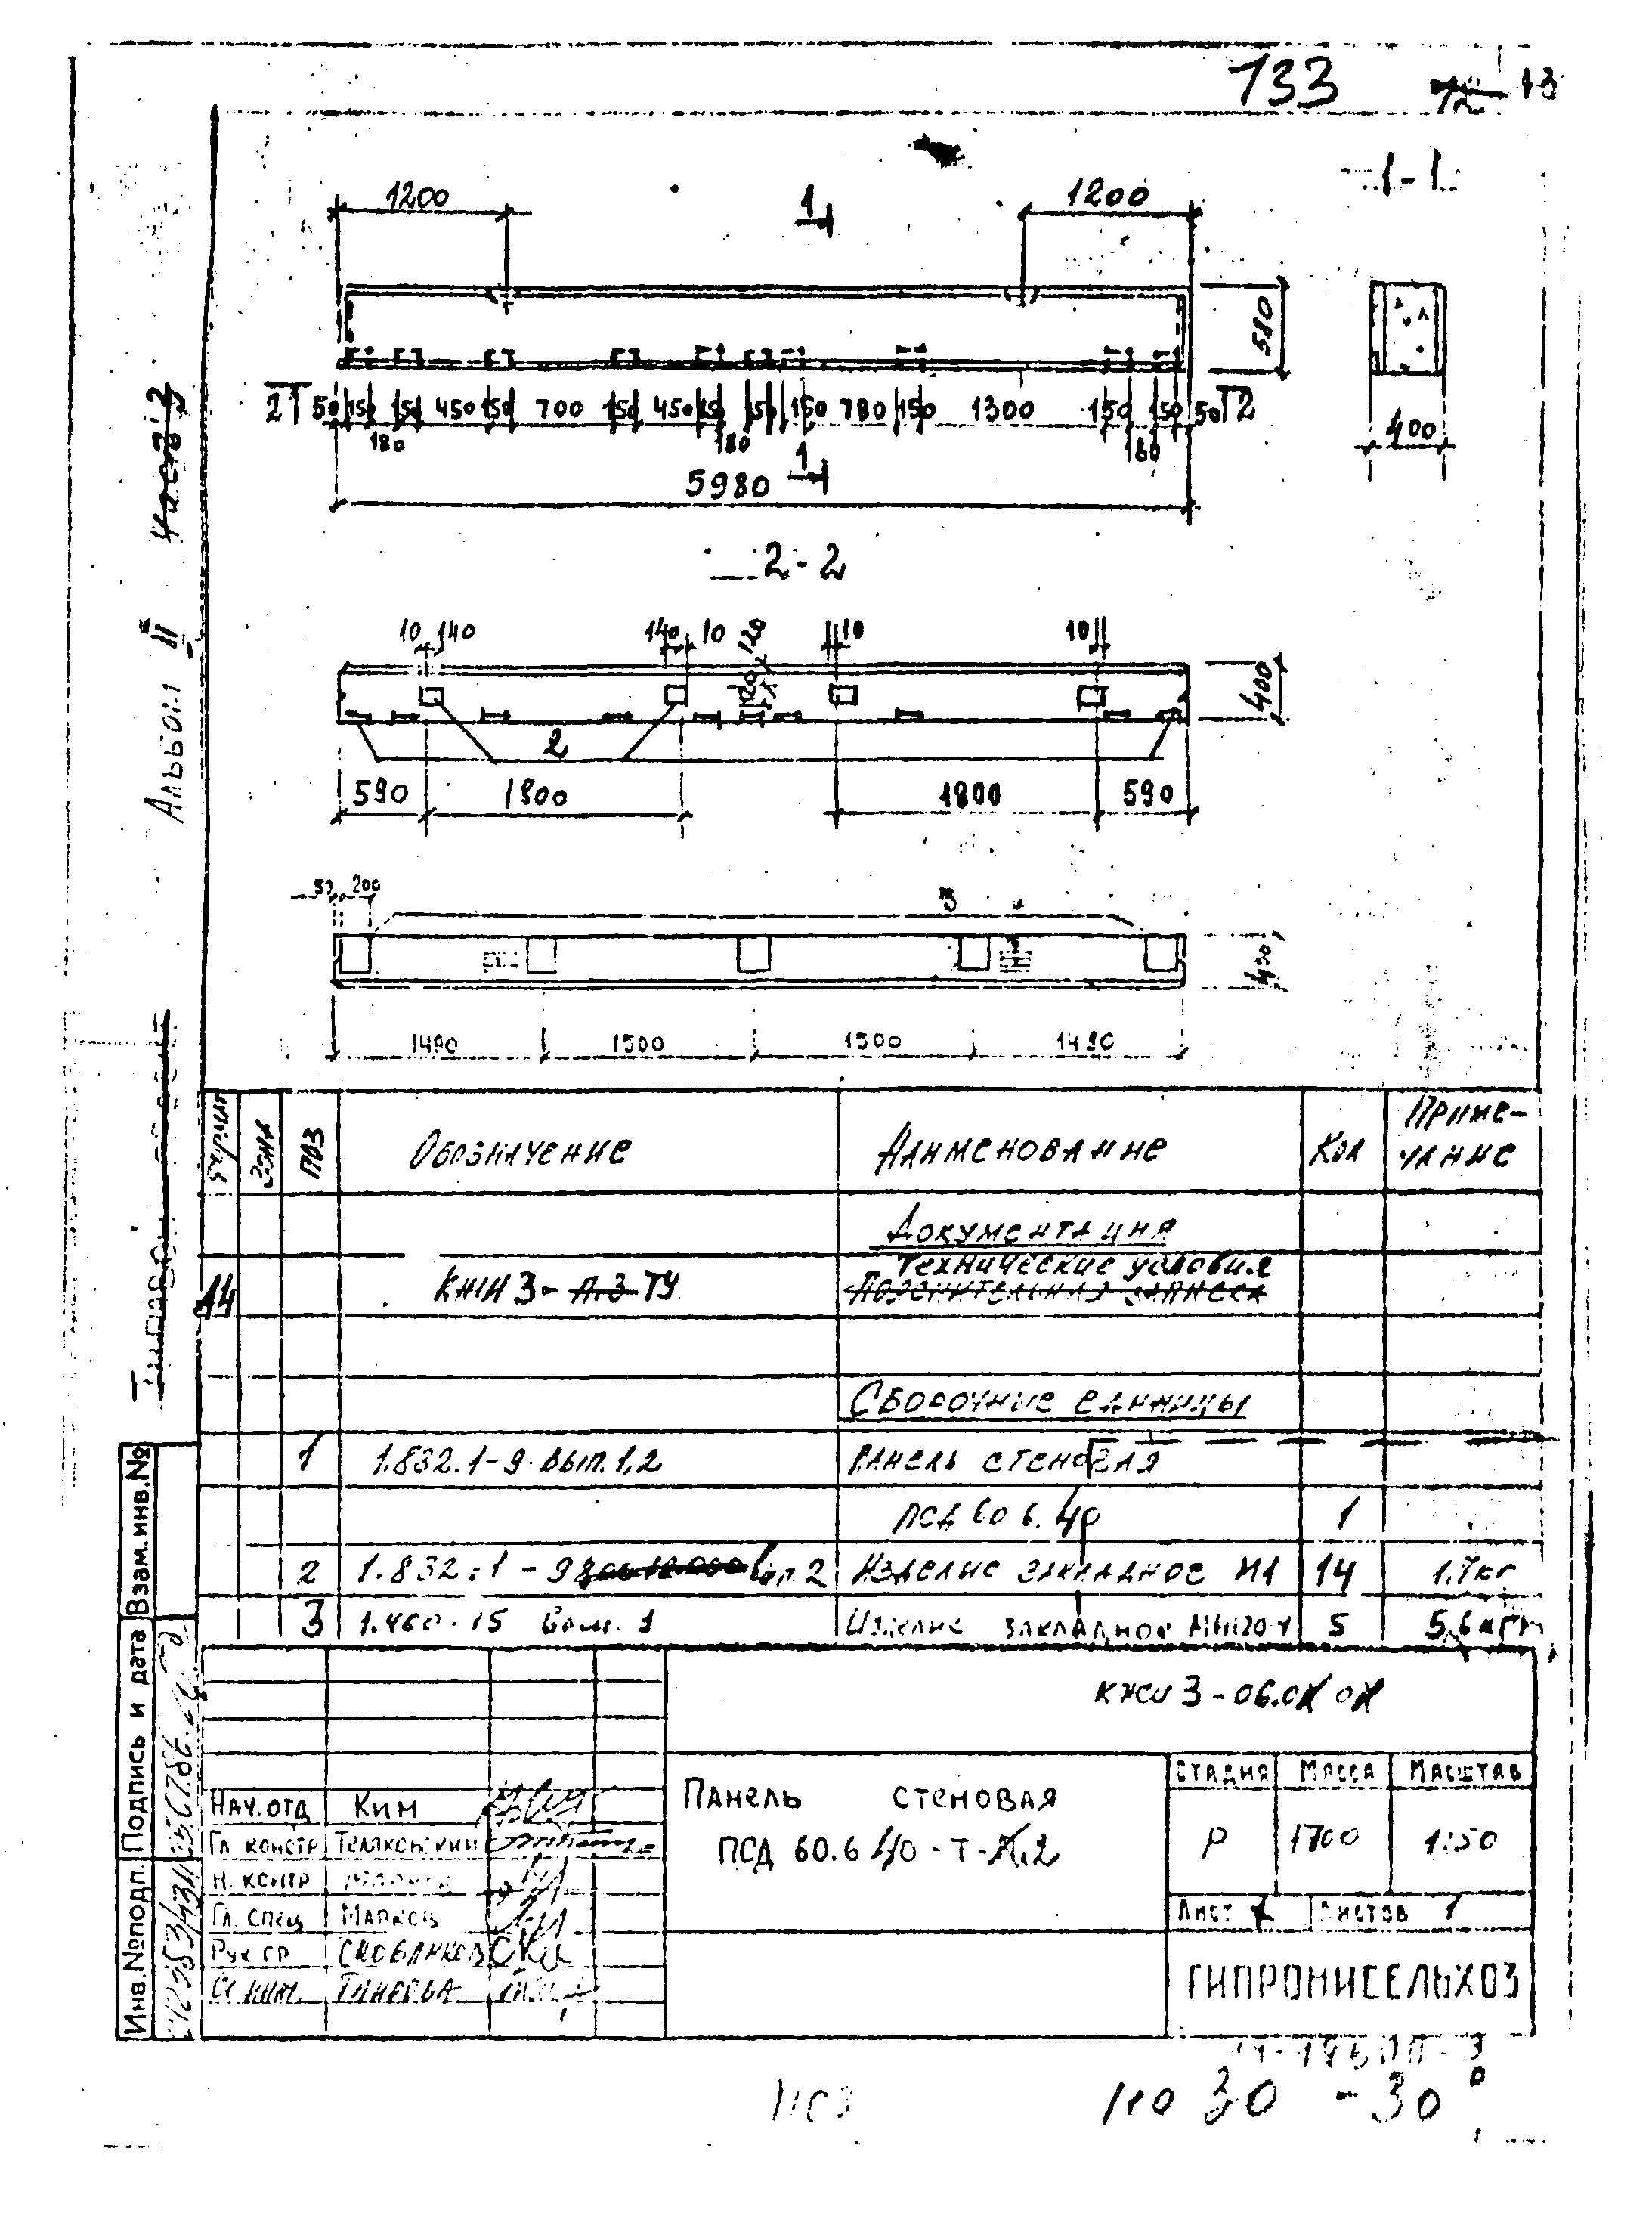 133
13
1-1
1200
1
1200
580
2
50 150 150 450 150 700 150 450 150 150 150 780 150 1300 150 150 50
2
180
180
180
400
1
5980
2-2
10 140
140 10
120
10
10
400
2
590
1800
1800
590
50 200
3
400
1490
1500
1500
1490
Альбом II
Часть 2
Формат
Зона
Поз
Обозначение
Наименование
Кол
Приме-
чание
Документация
Технические условия
14
КЖИ 3- п.з ТУ
Пояснительная записка
Сборочные единицы
1
1.832.1-9. вып.1,2
Панель стеновая
ПСД 60 6.40
1
2
1.832.1-9
вып 2
Изделие закладное М1
14
1.7кг
3
1.460-15 Вып. 1
Изделие закладное МН120-4
5
5,6кг
Взам.инв.№
Подпись и дата
Инв.№подл.
КЖИ 3-06.
Нач.отд
Ким
Гл. констр
Теляковский
Н. контр
Марков
Гл. спец
Марков
Рук гр
Скобликов
Ст инж.
Панель стеновая
ПСД 60.6 40-Т-
2
Стадия
Масса
Масштаб
Р
1700
1:50
Лист
Листов 1
ГИПРОНИСЕЛЬХОЗ
30 -30